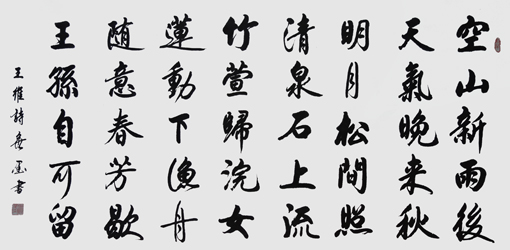 空山新雨後
天氣晚来秋
明月松間照
清泉石上流
竹萱歸浣女
蓮動下漁舟
随意春芳歇
王孫自可留
王維詩墨書